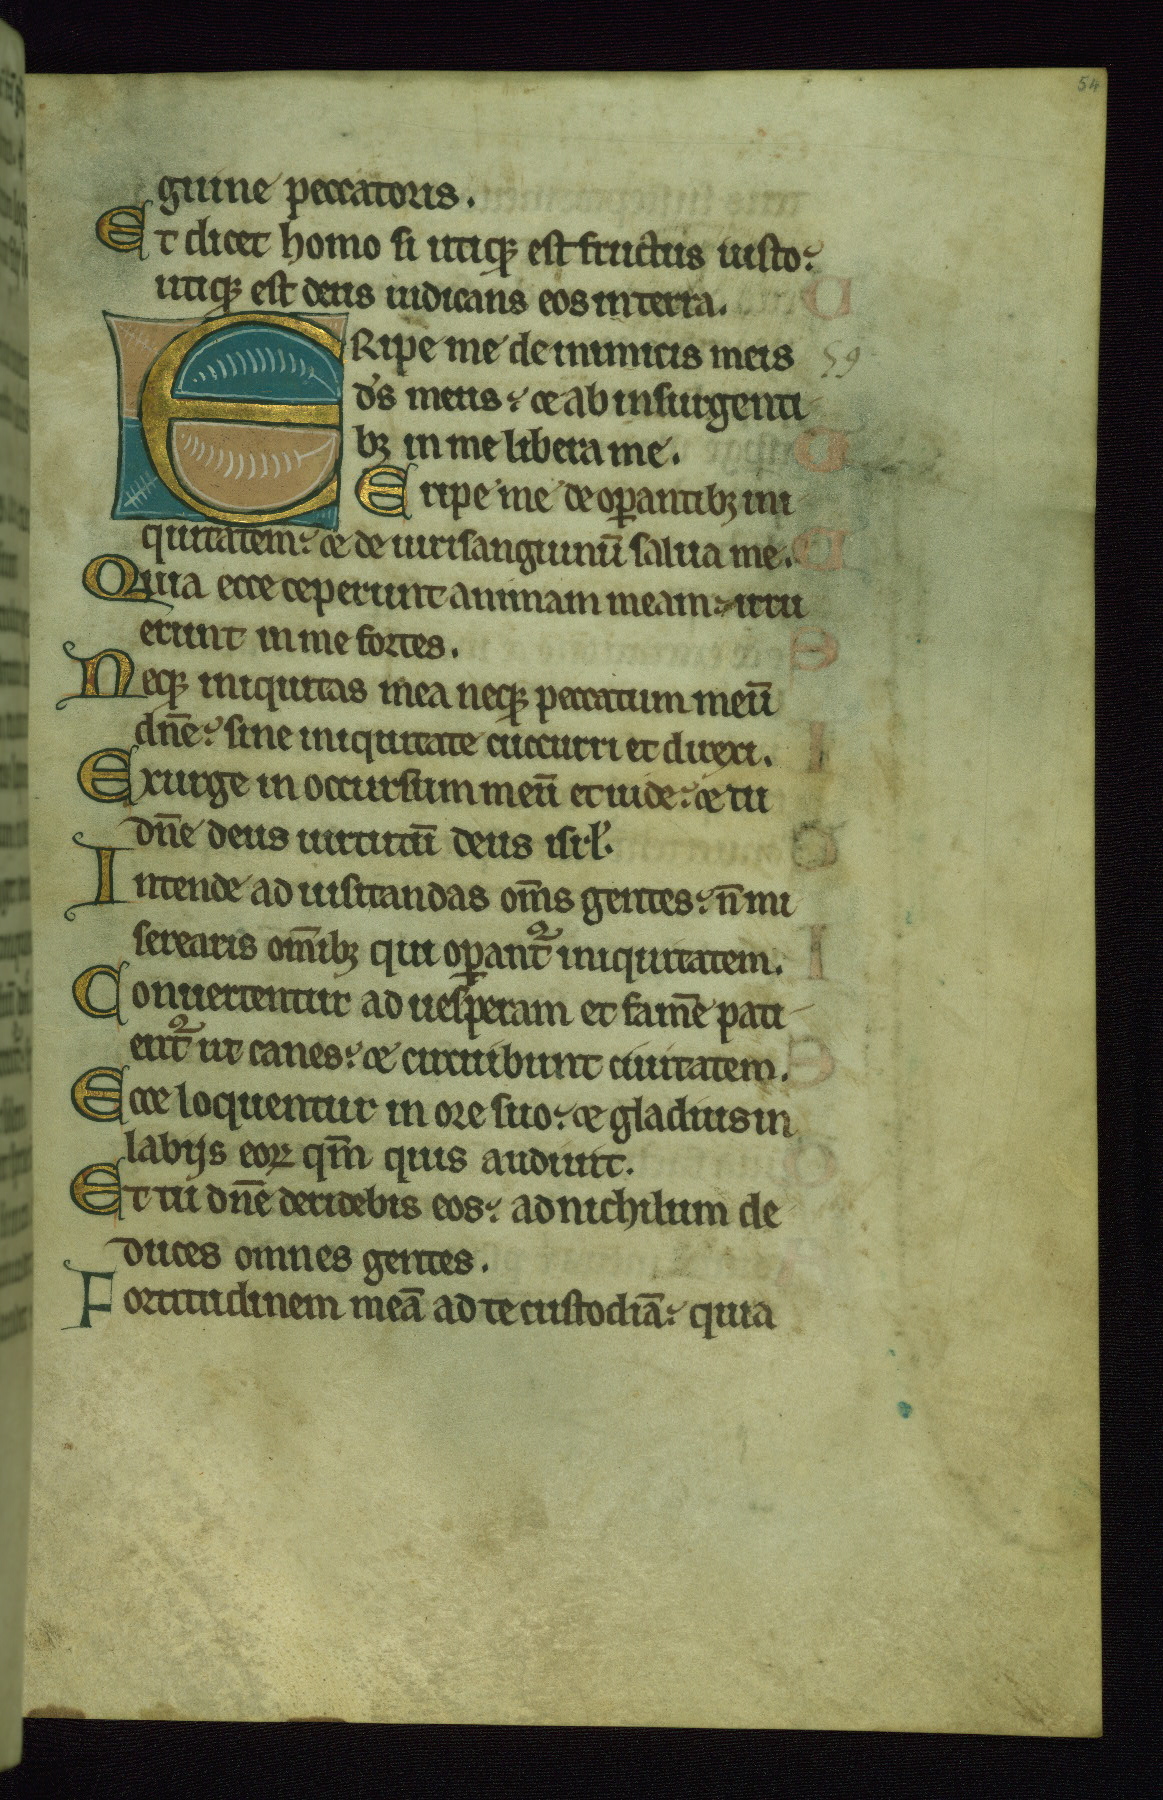 54
guine peccatoris.
Et dicet homo si utiqꝫ est fructus iusto:
utiqꝫ est deus iudicans eos in terra.
ERipe me de inimicis meis 59
d̄s meus: ⁊ ab insurgenti
bꝫ in me libera me.
Eripe me de oꝑantibꝫ ini
quitatem: ⁊ de uiri sanguinū salua me.
Quia ecce ceperunt animam meam: irru
erunt in me fortes.
Neqꝫ iniquitas mea neqꝫ peccatum meū
dn̄e: sine iniquitate cuccurri et direxi.
Exurge in occursum meū et uide: ⁊ tu
dn̄e deus uirtutū deus isr̄l.
Intende ad uisitandas om̄s gentes: n̄ mi
serearis om̄ibꝫ qui oꝑant᷑ iniquitatem.
Conuertentur ad uesperam et famē pati
ent᷑ ut canes: ⁊ circuibunt ciuitatem.
Ecce loquentur in ore suo: ⁊ gladius in
labijs eoꝝ qm̄ quis audiuit.
Et tu dn̄e deridebis eos: ad nichilum de
duces omnes gentes.
Fortitudinem meā ad te custodiā: quia